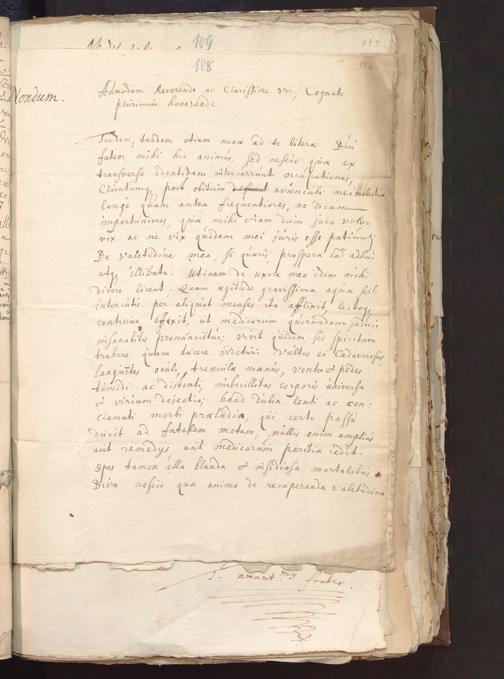 109
108
Londum.
Admodum Reverende ac Clarissime vir, Cognate
plurimum honorade.
Tandem, tandem etiam meae ad te literae. Diu
fateor, mihi hic animus, sed nescio quae ex
transverso identidem intercurrunt occupationes,
Clientumq, post obitum avunculi mei molestia
longè quam antea frequentiores, ne dicam
importuniores, quae mihi etiam dum jura volvo,
vix ac ne vix quidem mei juris esse patiunt
De valetudine mea, si quaeris, prospera ea adhuc
atq illibata. Utinam de uxore mea idem mihi
dicere liceat. Quam aegritudo gravissima aqua scil.
intercutis per aliquot menses ita afflixit, lectoq
continuo affixit, ut medicorum quorundam judicio
insanabilis pronuncietur; vivit quidem sed spiritum
trahere quam ducere videtur. Vultus ei cadaverosus,
languentes oculi, tremula manus, venter et pedes
tumidi ac distenti, imbecillitas corporis universa
et virium dejectio; haud dubia lenti ac con-
clamati morbi praeludia, qui certo passu
ducit ad fatalem metam, nullis enim amplius
aut remedys aut medicorum peritia cedit.
Spes tamen illa blanda et insidiosa mortalibus
Diva nescio qua animo de recuperanda valetudine
T. amant.my frater.